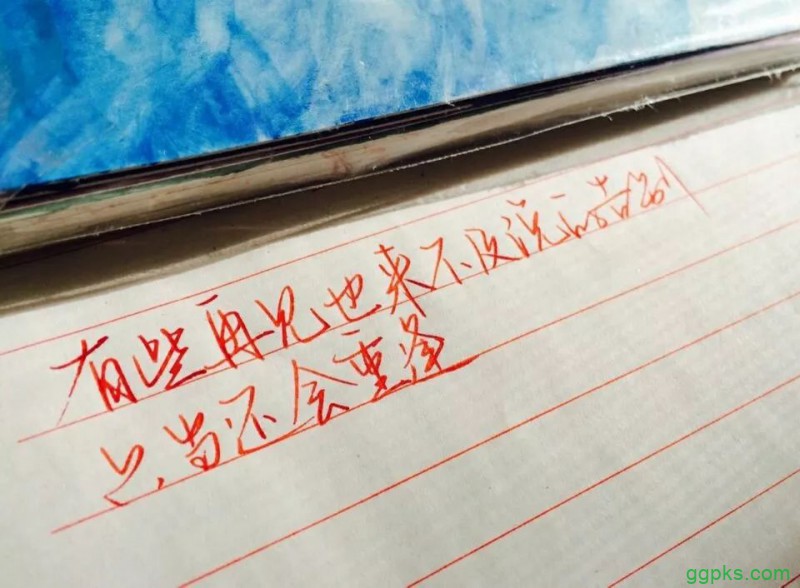 有些再见也来不及说告别
只当还会重逢
ggpks.com